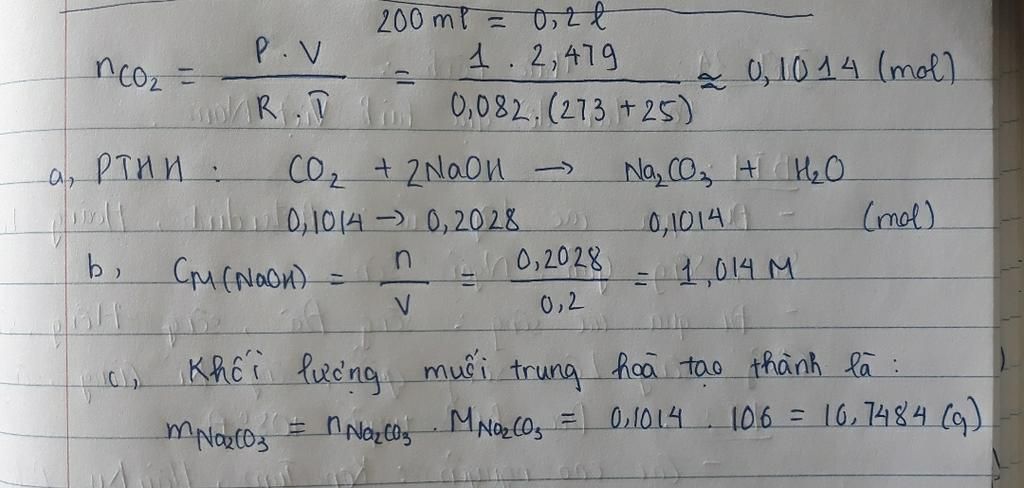 200 ml = 0,2 l
nCO₂ = P.V / R.T = 1 . 2,479 / 0,082.(273+25) ≈ 0,1014 (mol)
a, PTHH : CO₂ + 2NaOH → Na₂CO₃ + H₂O
0,1014 → 0,2028 0,1014 (mol)
b, CM(NaOH) = n / V = 0,2028 / 0,2 = 1,014 M
c, Khối lượng muối trung hoà tạo thành là :
mNa₂CO₃ = nNa₂CO₃ . MNa₂CO₃ = 0,1014 . 106 = 10,7484 (g)